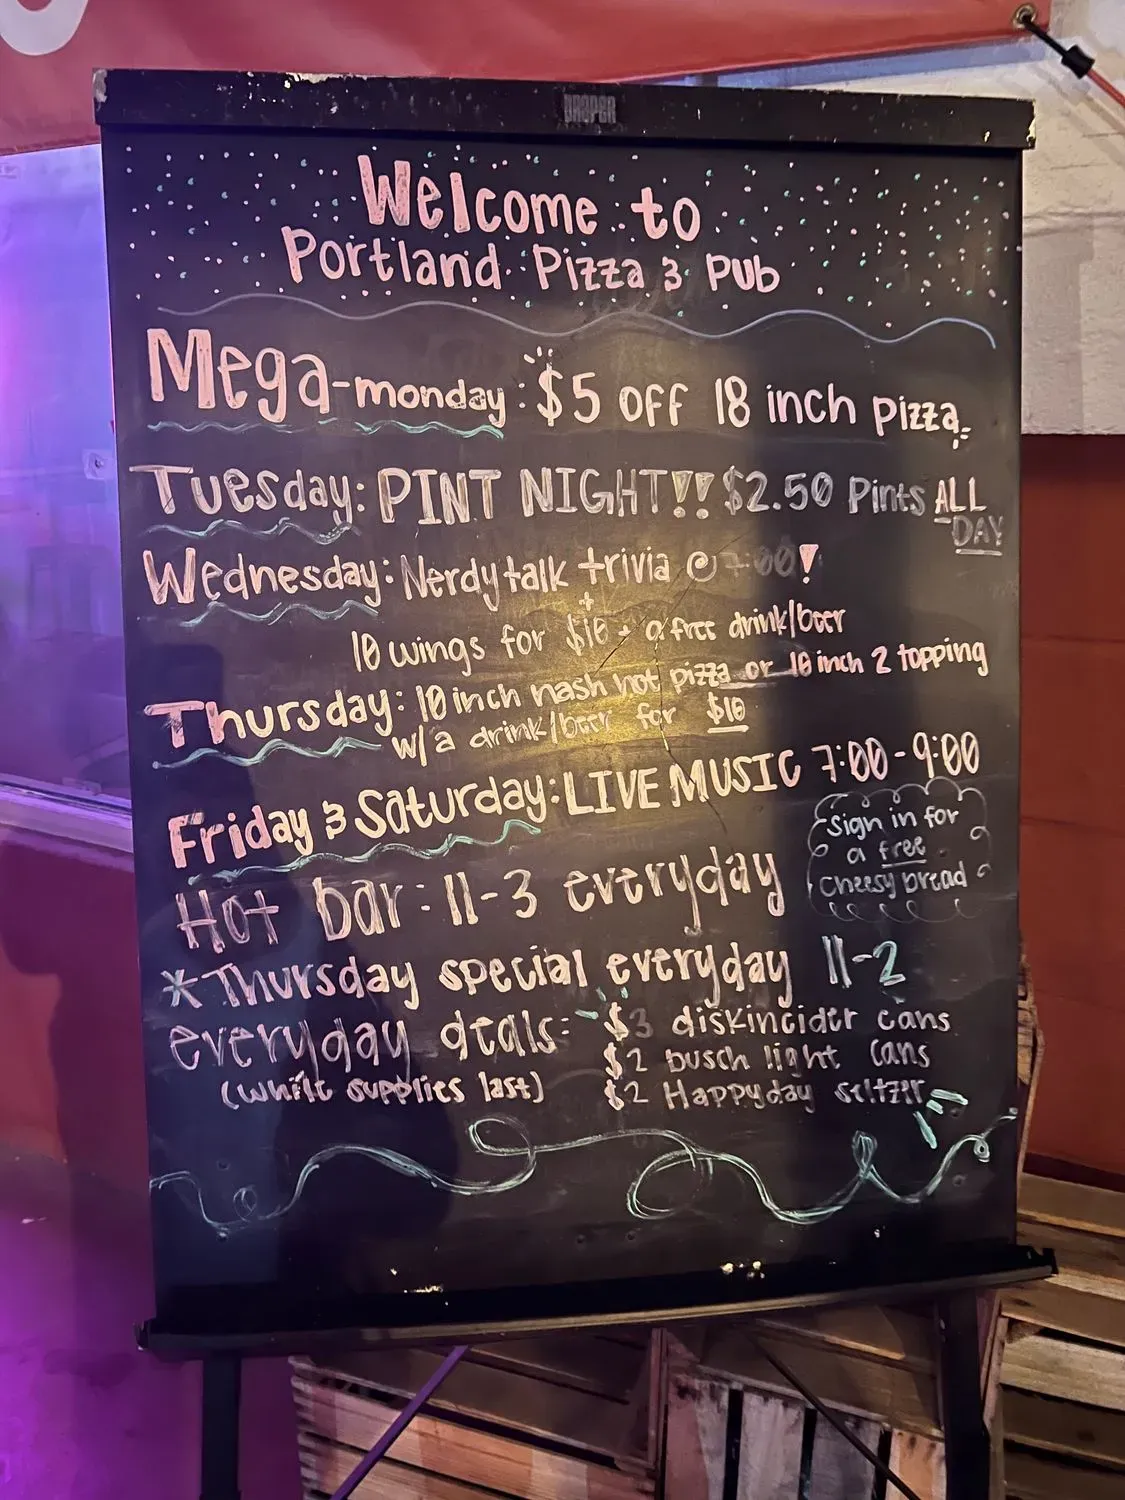 DRAPER
Welcome to
Portland Pizza & Pub
Mega-monday: $5 OFF 18 inch pizza
Tuesday: PINT NIGHT!! $2.50 Pints ALL
DAY
Wednesday: Nerdy talk trivia @ 7:00!
+
10 wings for $10 + a free drink/beer
Thursday: 10 inch nash hot pizza or 10 inch 2 topping
w/a drink/beer for $10
Friday & Saturday: LIVE MUSIC 7:00-9:00
Sign in for
a free
cheesy bread
Hot bar: 11-3 everyday
*Thursday special everyday 11-2
everyday deals: $3 diskincider cans
(while supplies last) $2 busch light cans
$2 Happyday seltzer